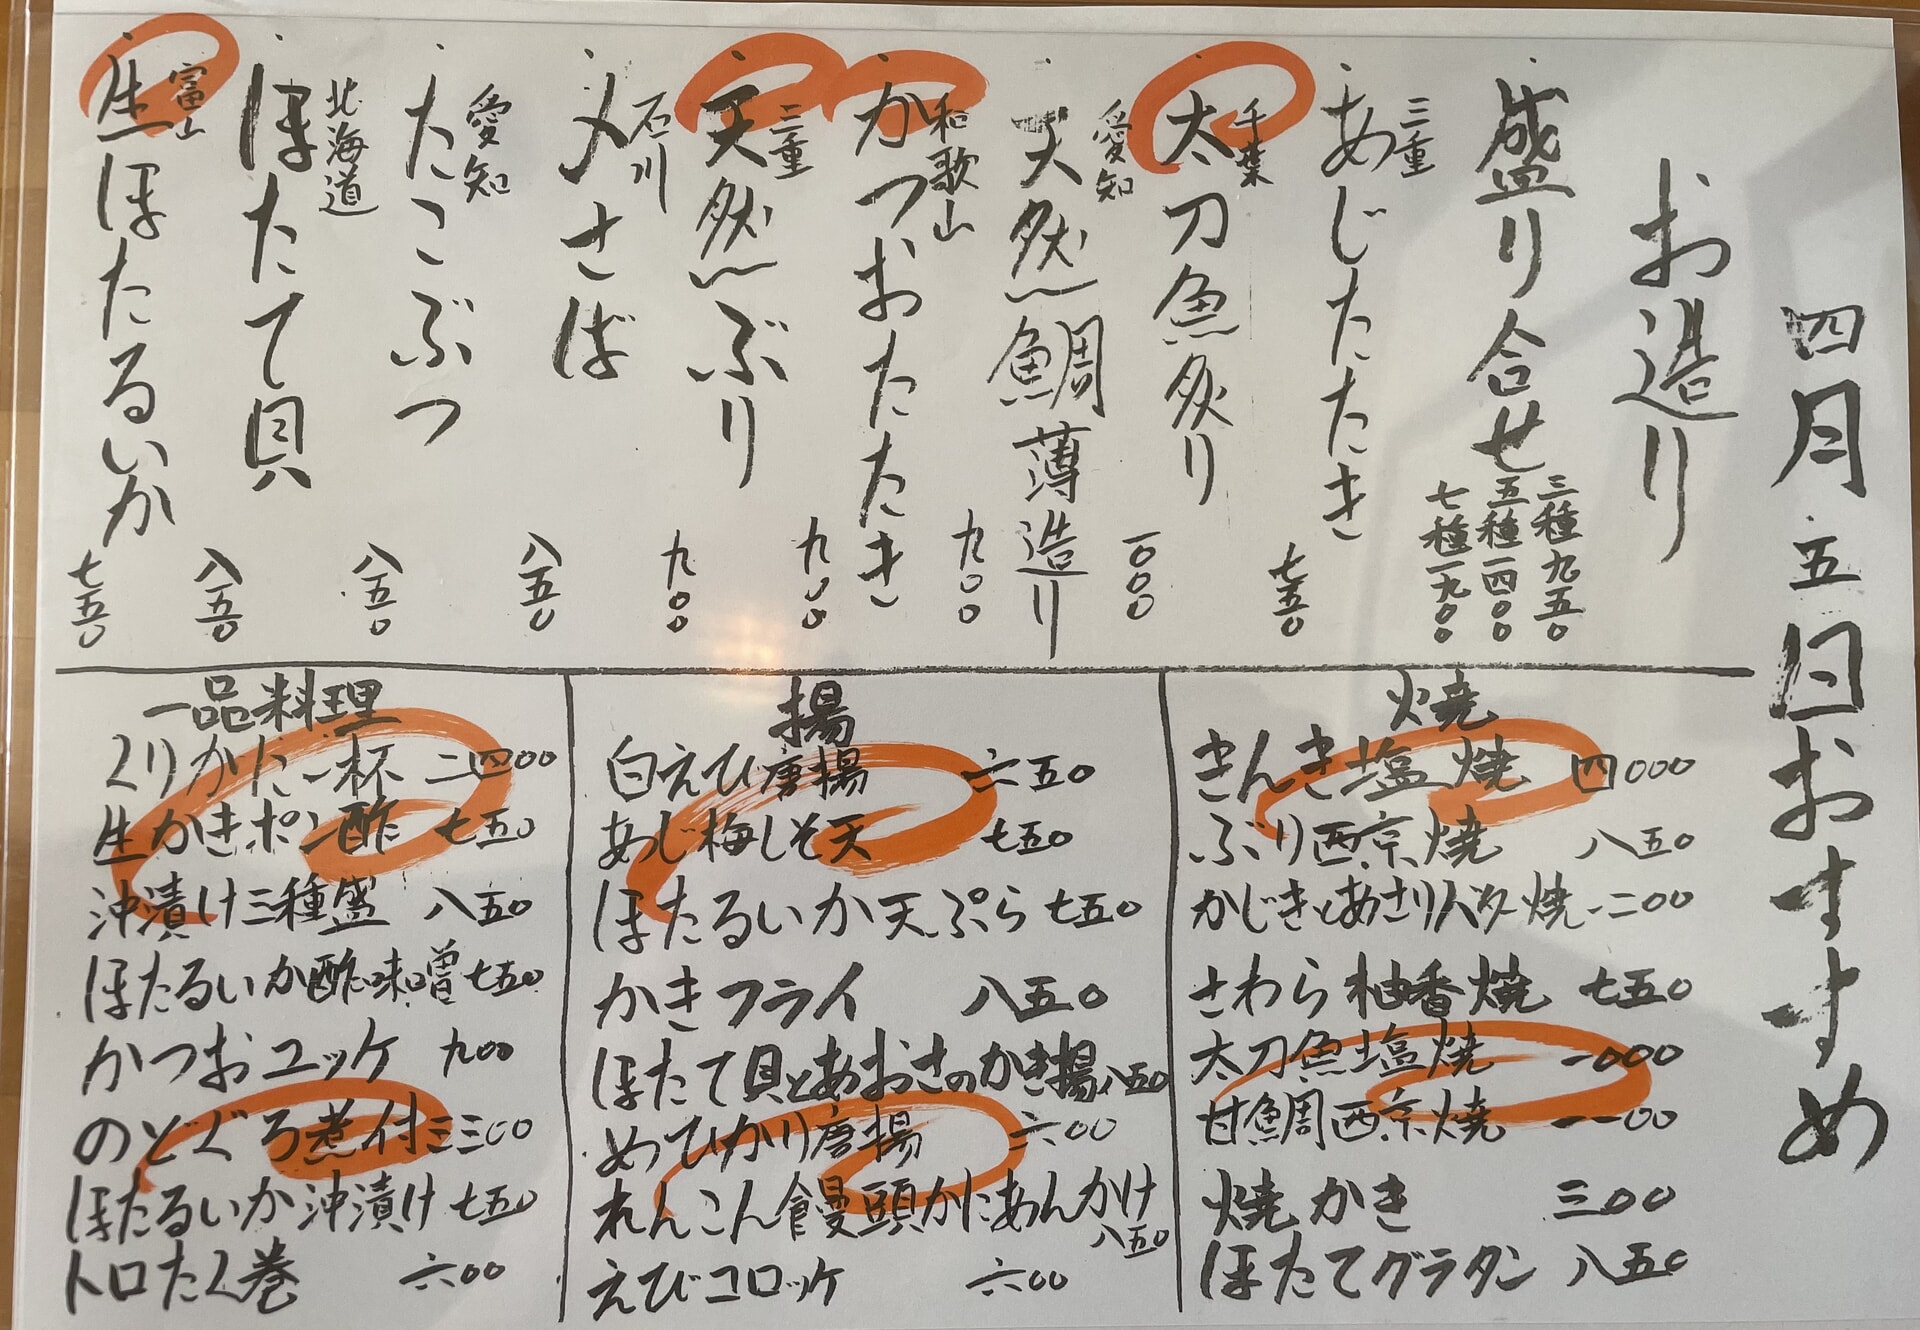 四月五日おすすめ
お造り
盛り合せ
三種九五〇
五種一四〇〇
七種一九〇〇
三重
・あじたたき 七五〇
千葉
・太刀魚炙り 一〇〇〇
愛知
・天然鯛薄造り 九〇〇
和歌山
・かつおたたき 九〇〇
三重
・天然ぶり 九〇〇
石川
・〆さば 八五〇
愛知
・たこぶつ 八五〇
北海道
・ほたて貝 八五〇
富山
・生ほたるいか 七五〇
焼
きんき塩焼 四〇〇〇
ぶり西京焼 八五〇
かじきとあさりバター焼 一二〇〇
さわら柚香焼 七五〇
太刀魚塩焼 一〇〇〇
甘鯛西京焼 一一〇〇
焼かき 三〇〇
ほたてグラタン 八五〇
揚
白えび唐揚 六五〇
あじ梅しそ天 七五〇
ほたるいか天ぷら 七五〇
かきフライ 八五〇
ほたて貝とあおさのかき揚 八五〇
めひかり唐揚 六〇〇
れんこん饅頭かにあんかけ 八五〇
えびコロッケ 六〇〇
一品料理
くりかに一杯 二四〇〇
生かきポン酢 七五〇
沖漬け三種盛 八五〇
ほたるいか酢味噌 七五〇
かつおユッケ 九〇〇
のどぐろ煮付 三三〇〇
ほたるいか沖漬け 七五〇
トロたく巻 六〇〇